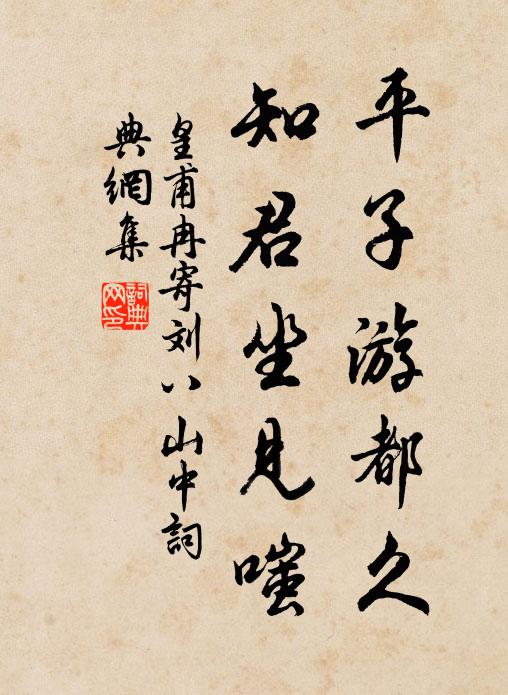 平子游都久
知君坐見嗤
皇甫冉寄刘八山中詞
典網集
詞典
网印